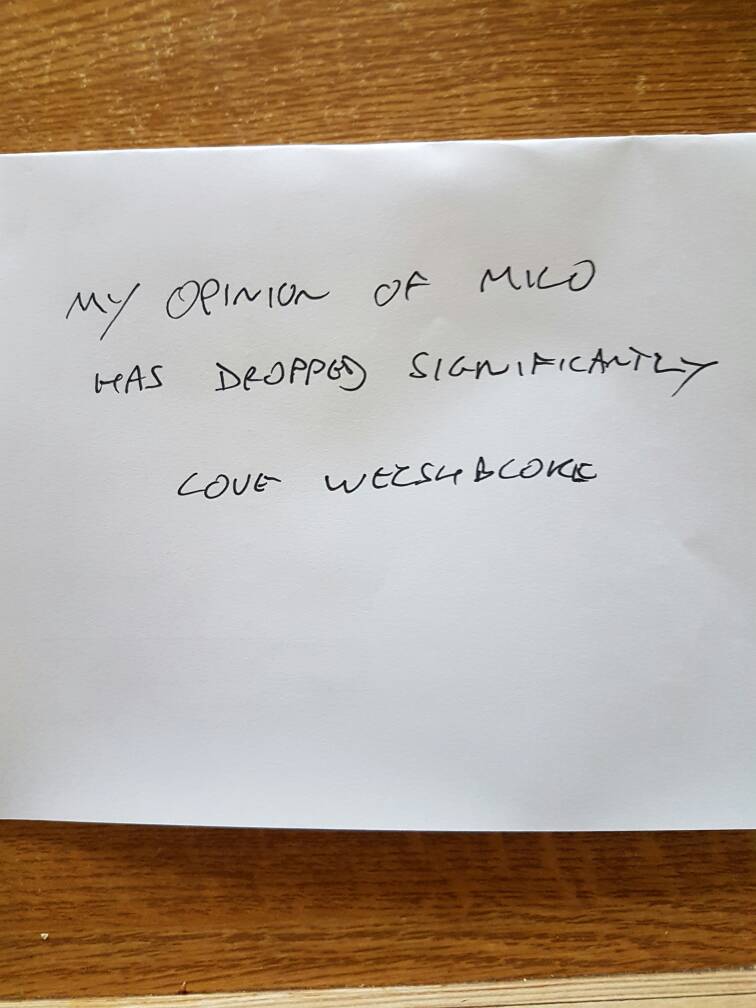 MY OPINION OF MILO
HAS DROPPED SIGNIFICANTLY
LOVE WELSHBLOKE